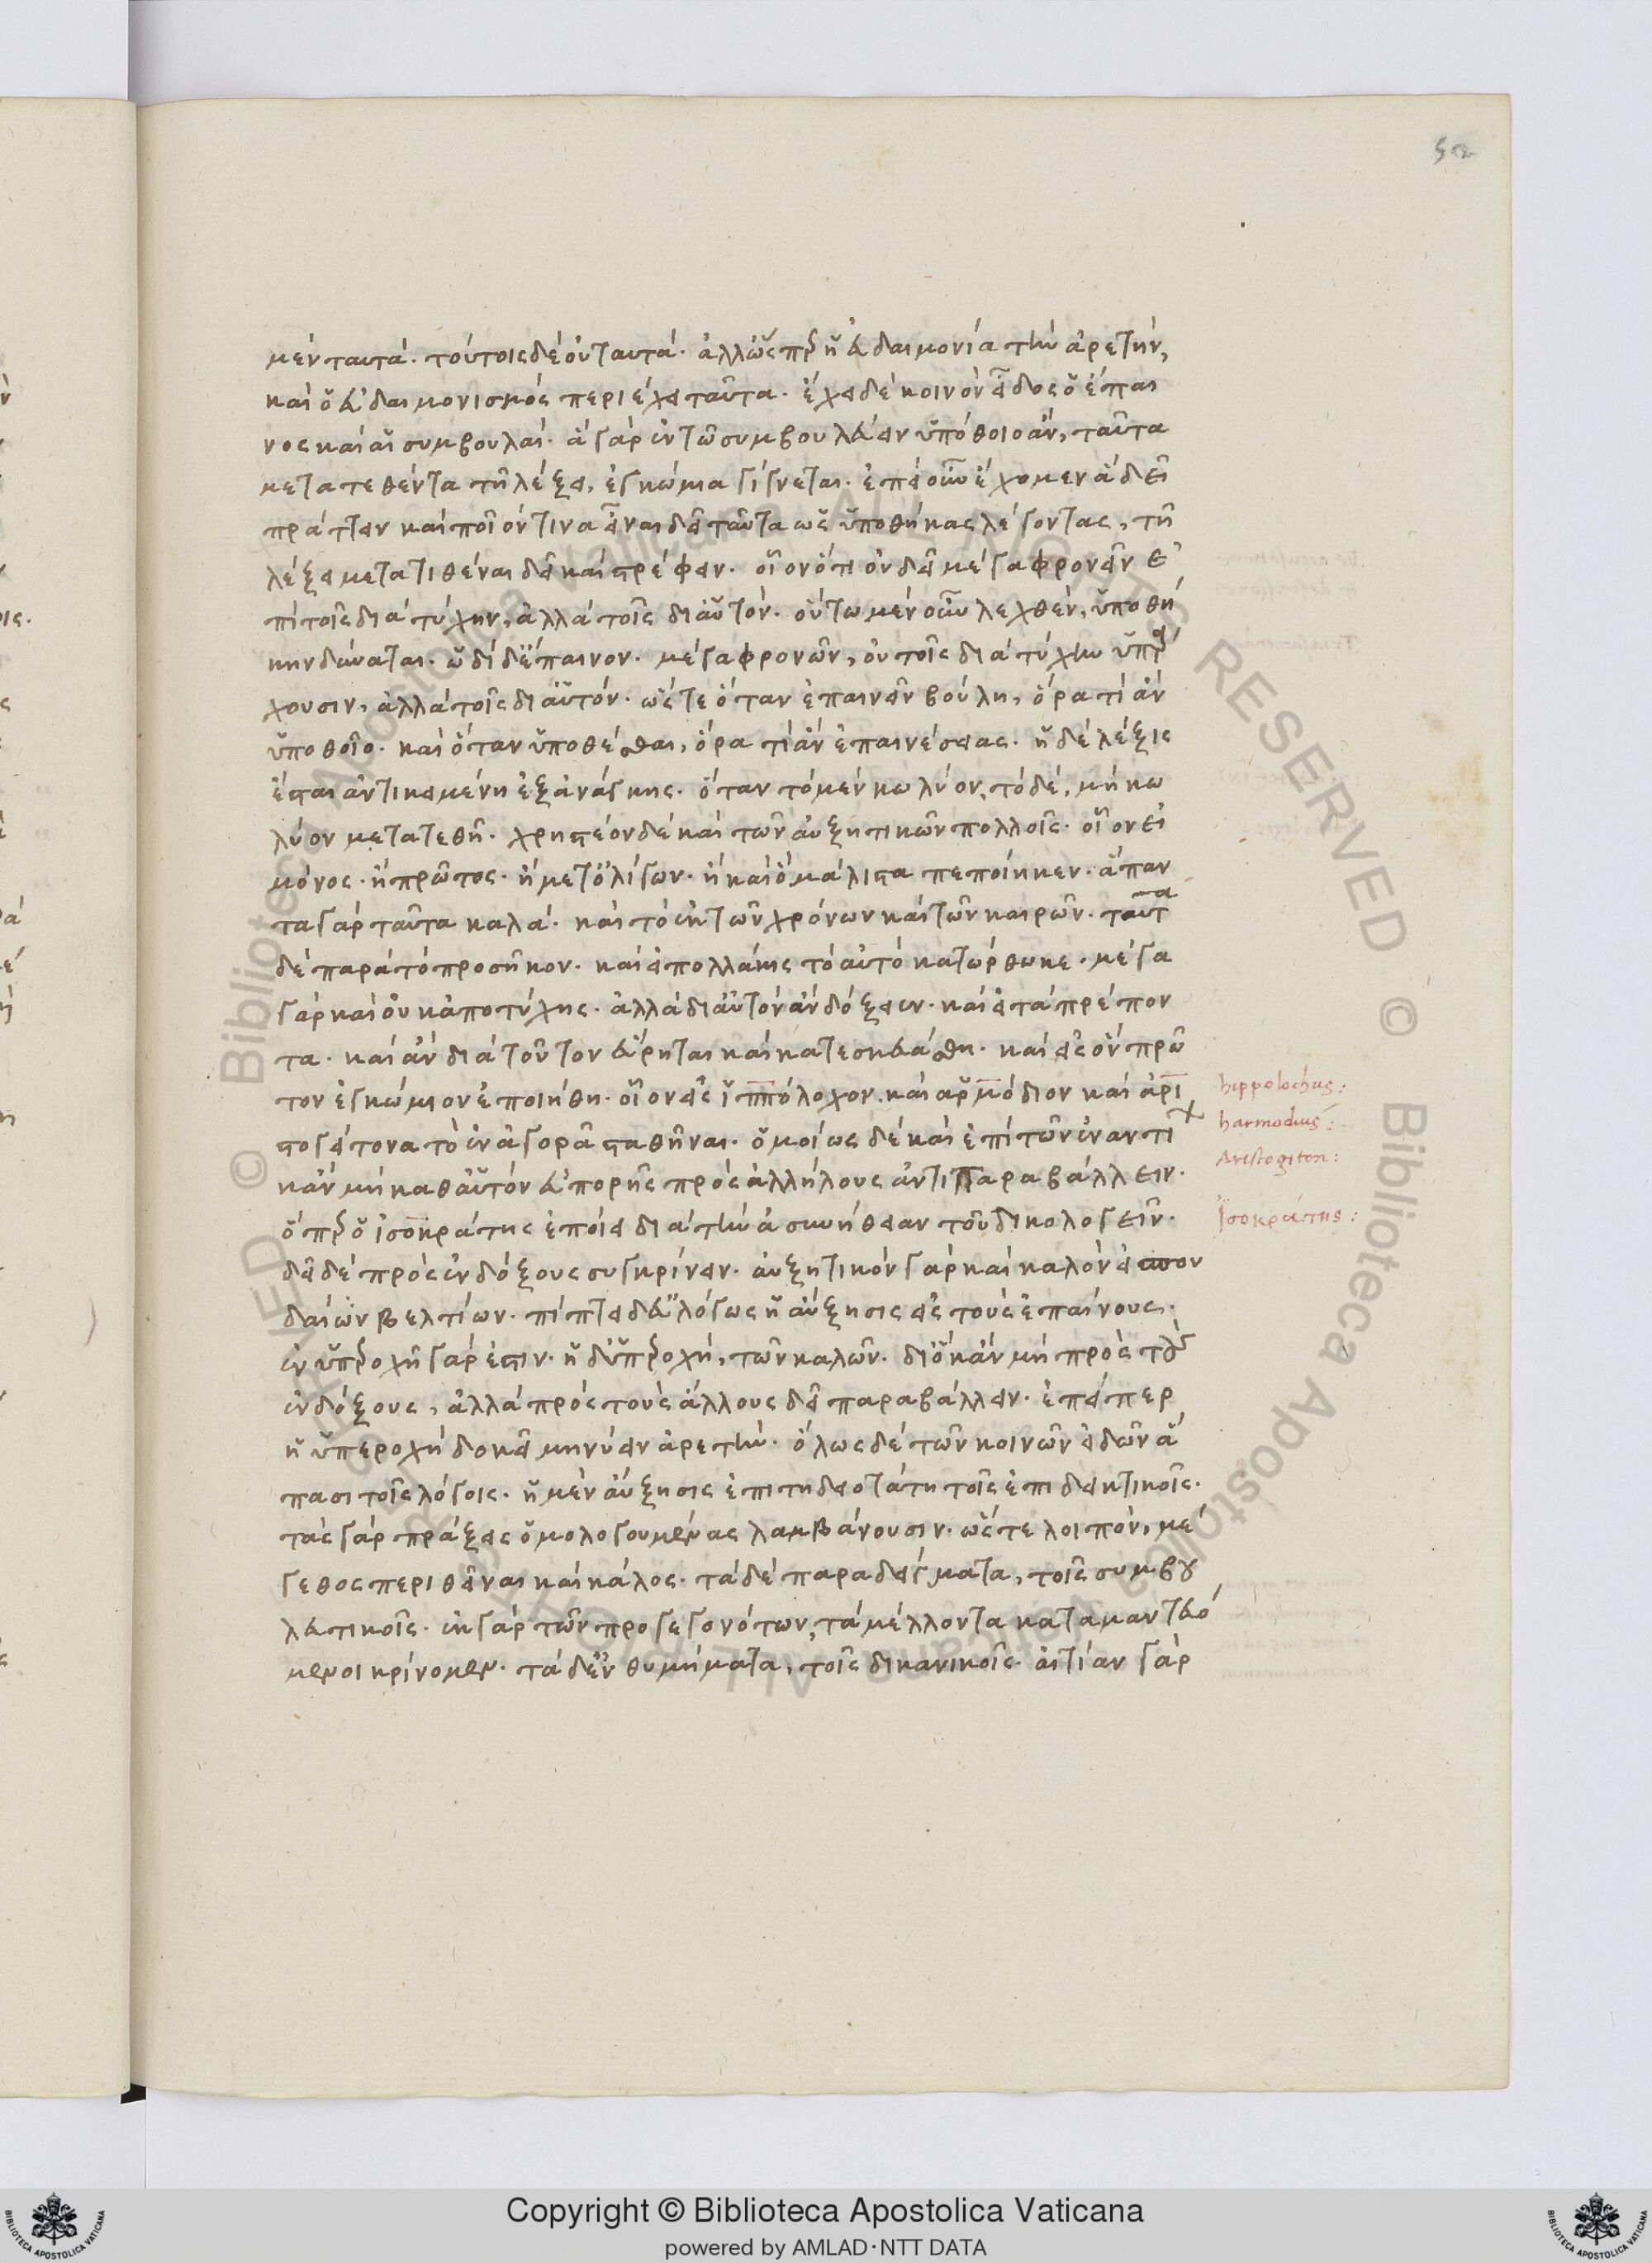 50
μὲν ταυτὰ· τούτοις δὲ οὐ ταυτά· ἀλλ ὥσπερ ἡ εὐδαιμονία τὴν ἀρετὴν,
καὶ ὁ εὐδαιμονισμὸς περιέχει ταῦτα· ἔχει δὲ κοινὸν εἶδος ὁ ἔπαι
νος καὶ αἱ συμβουλαί· ἃ γὰρ ἐν τῶ συμβουλεύειν ὑπόθοιο ἂν, ταῦτα
μετατεθέντα τῆ λέξει, ἐγκώμια γίγνεται· ἐπεὶ οὖν ἔχομεν ἃ δεῖ
πράττειν καὶ ποῖόν τινα εἶναι δεῖ ταῦτα ὡς ὑποθήκας λέγοντας, τῆ
λέξει μετατιθέναι δεῖ καὶ στρέφειν· οἷον ὅτι οὐ δεῖ μέγα φρονεῖν ἐ
πὶ τοῖς διὰ τύχην, ἀλλὰ τοῖς δι αὑτόν· οὕτω μὲν οὖν λεχθὲν, ὑποθή
κην δύναται· ὡδὶ δ ἔπαινον· μέγα φρονῶν, οὐ τοῖς διὰ τύχην ὑπάρ
χουσιν, ἀλλὰ τοῖς δι αὑτόν· ὥστε ὅταν ἐπαινεῖν βούλη, ὅρα τί ἂν
ὑποθοῖο· καὶ ὅταν ὑποθέσθαι, ὅρα τί ἂν ἐπαινέσειας· ἡ δὲ λέξις
ἔσται ἀντικειμένη ἐξ ἀνάγκης· ὅταν τὸ μὲν κωλύον, τὸ δὲ, μὴ κω
λύον μετατεθῆ· χρηστέον δὲ καὶ τῶν αὐξητικῶν πολλοῖς· οἷον εἰ
μόνος· ἢ πρῶτος· ἢ μετ ὀλίγων· ἢ καὶ ὃ μάλιστα πεποίηκεν· ἅπαν
τα γὰρ ταῦτα καλά· καὶ τὸ ἐκ τῶν χρόνων καὶ τῶν καιρῶν· ταῦτα
δὲ παρὰ τὸ προσῆκον· καὶ εἰ πολλάκις τὸ αὐτὸ κατώρθωκε· μέγα
γὰρ καὶ οὐκ ἀπὸ τύχης· ἀλλὰ δι αὑτὸν ἂν δόξειεν· καὶ εἰ τὰ πρέπον
τα· καὶ ἂν διὰ τοῦτον εὕρηται καὶ κατεσκευάσθη· καὶ εἰς ὃν πρῶ
τον ἐγκώμιον ἐποιήθη· οἷον εἰς ἱππόλοχον· καὶ ἁρμόδιον καὶ ἀρι
στογείτονα τὸ ἐν ἀγορᾶ σταθῆναι· ὁμοίως δὲ καὶ ἐπὶ τῶν ἐναντί
κἂν μὴ καθ αὑτὸν εὐπορῆς πρὸς ἀλλήλους ἀντιπαραβάλλειν·
ὅπερ ὁ ἰσοκράτης ἐποίει διὰ τὴν ἀσυνήθειαν τοῦ δικολογεῖν·
δεῖ δὲ πρὸς ἐνδόξους συγκρίνειν· αὐξητικὸν γὰρ καὶ καλὸν εἰ σπου
δαίων βελτίων· πίπτει δ εὐλόγως ἡ αὔξησις εἰς τοὺς ἐπαίνους·
ἐν ὑπεροχῆ γάρ ἐστιν· ἡ δ ὑπεροχὴ, τῶν καλῶν· διὸ κἂν μὴ πρὸς τοὺς
ἐνδόξους, ἀλλὰ πρὸς τοὺς ἄλλους δεῖ παραβάλλειν· ἐπείπερ
ἡ ὑπεροχὴ δοκεῖ μηνύειν ἀρετήν· ὅλως δὲ τῶν κοινῶν εἰδῶν ἅ
πασι τοῖς λόγοις· ἡ μὲν αὔξησις ἐπιτηδειοτάτη τοῖς ἐπιδεικτικοῖς·
τὰς γὰρ πράξεις ὁμολογουμένας λαμβάνουσιν· ὥστε λοιπὸν, μέ
γεθος περιθεῖναι καὶ κάλος· τὰ δὲ παραδείγματα, τοῖς συμβου
λευτικοῖς· ἐκ γὰρ τῶν προγεγονότων, τὰ μέλλοντα καταμαντευό
μενοι κρίνομεν· τὰ δ ἐνθυμήματα, τοῖς δικανικοῖς· αἰτίαν γὰρ
hippolochus:
harmodius:
Aristogiton:
ἰσοκράτης:
Copyright © Biblioteca Apostolica Vaticana
powered by AMLAD·NTT DATA